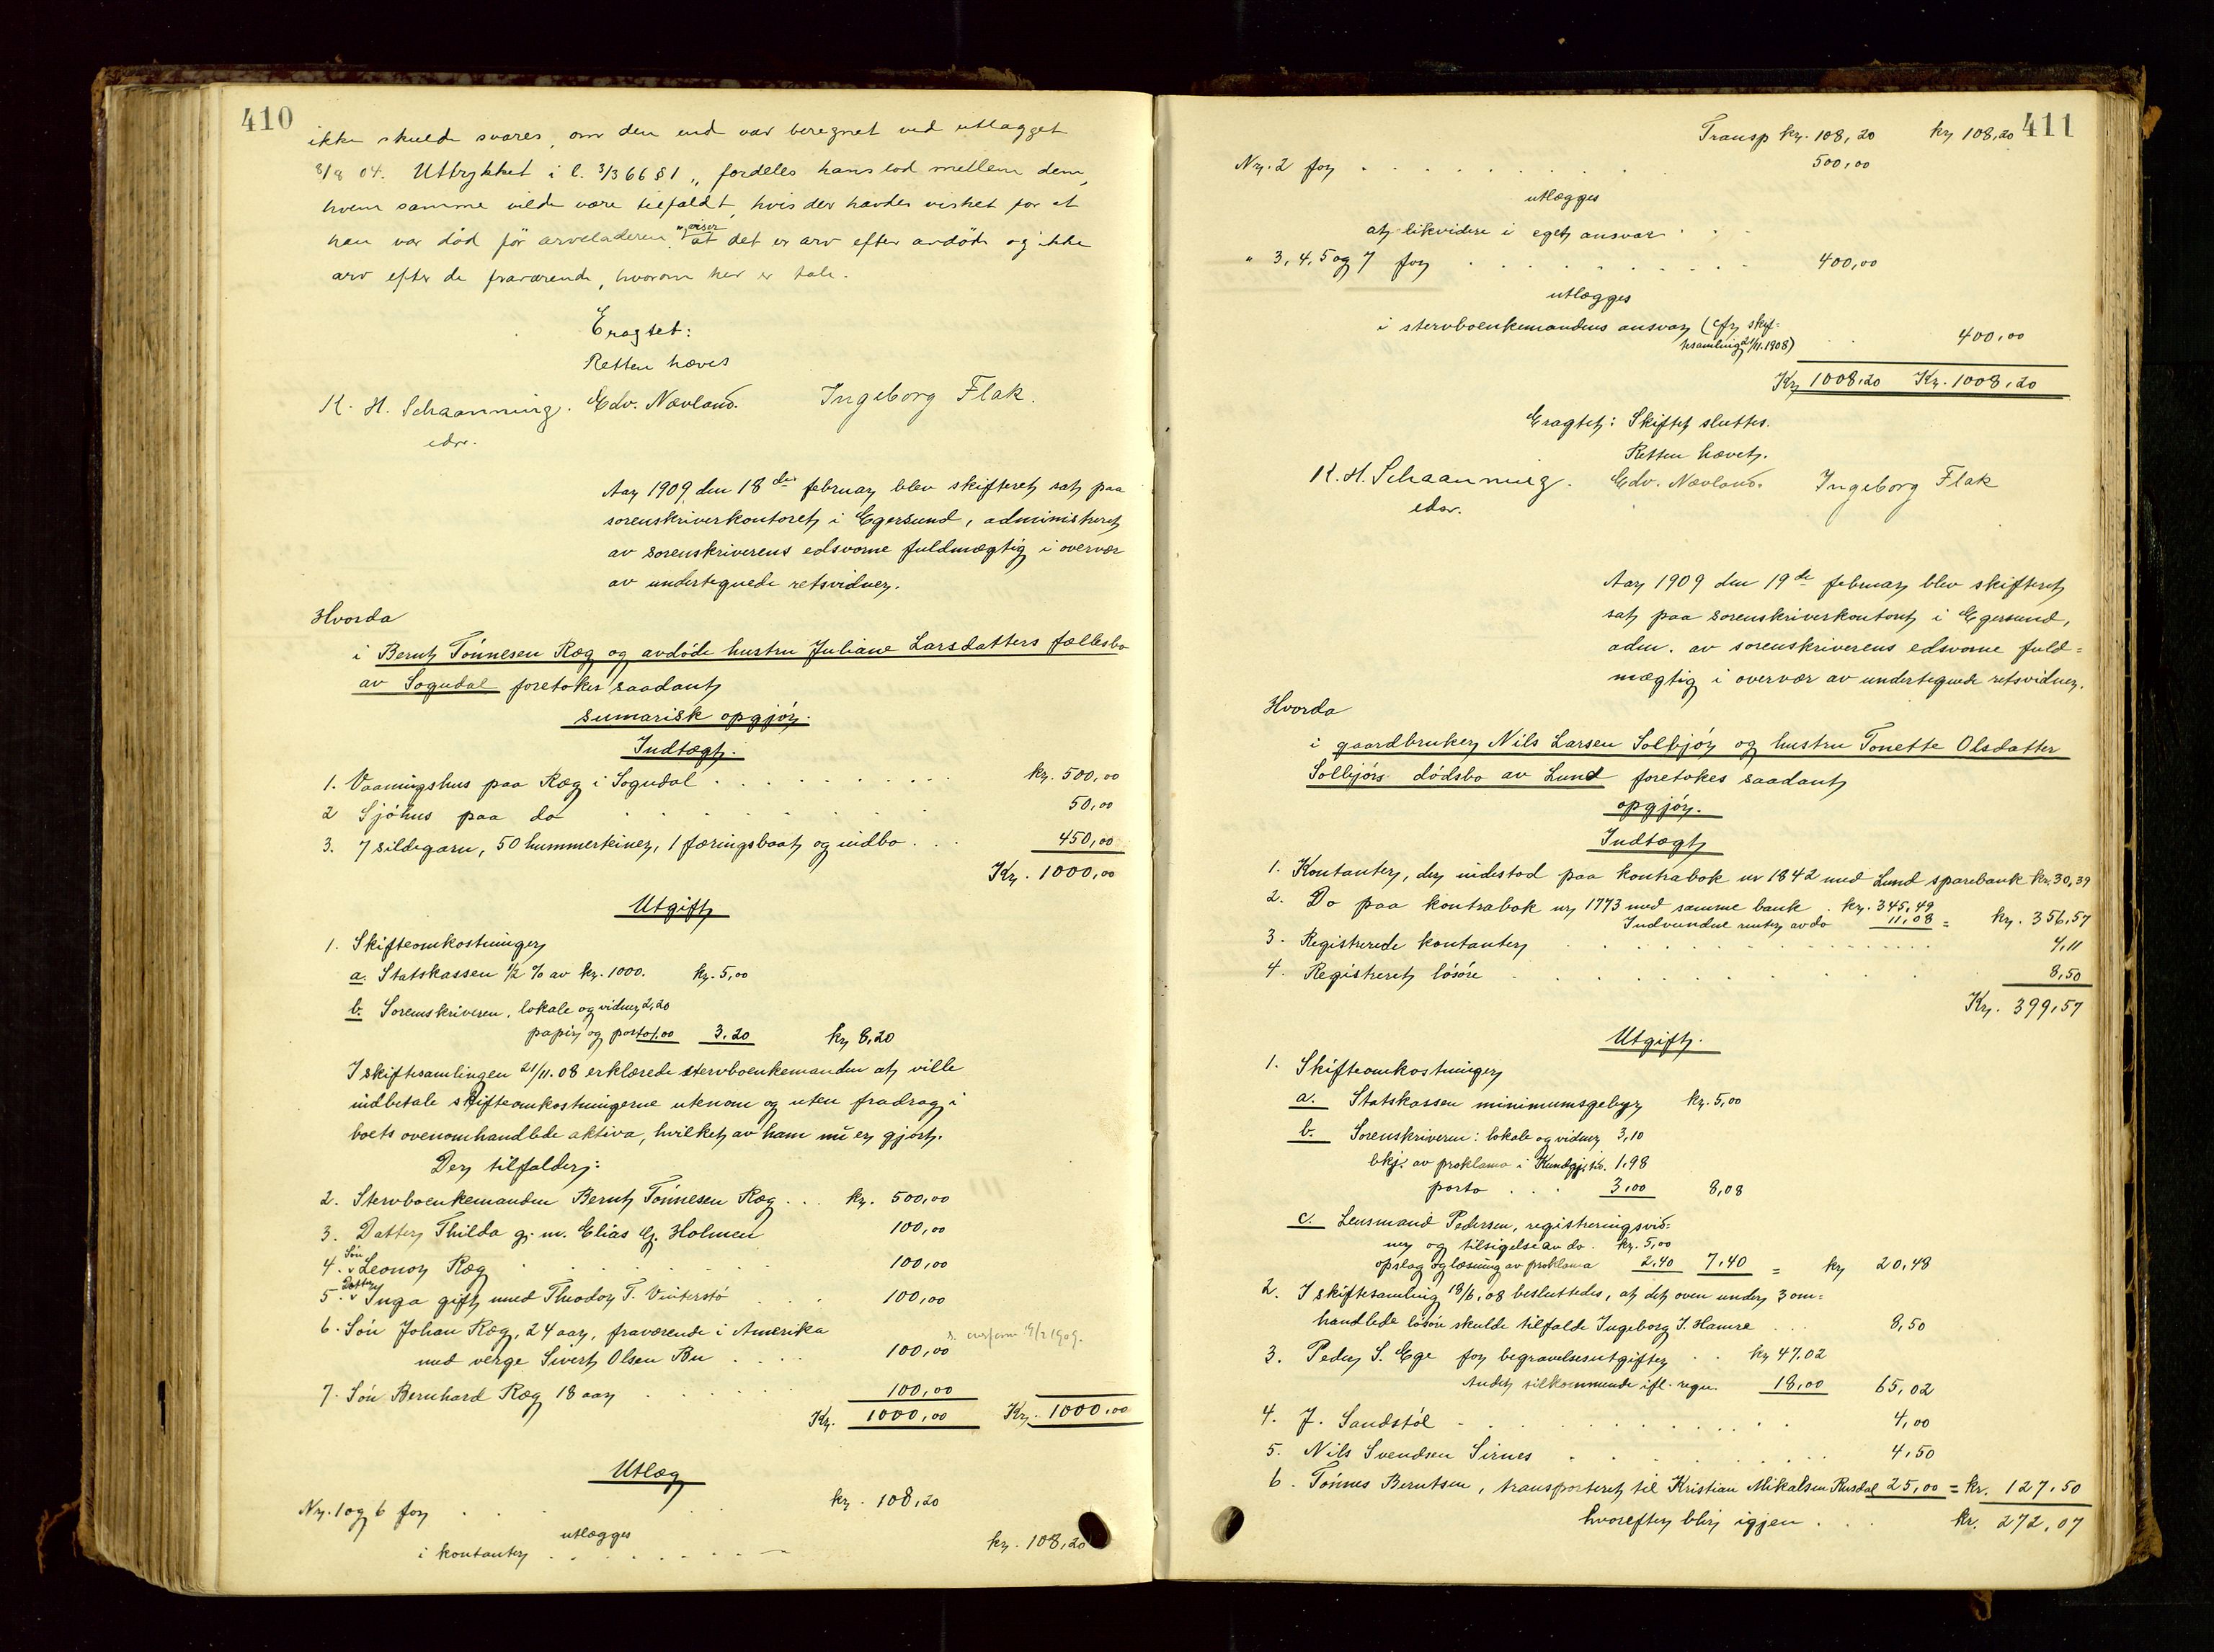 410
ikke skulde svares, om den end var beregnet ved utlægget
8/8 04. Uttrykket i l. 3/3 66 § 1 „fordeles hans lod mellem dem,
hvem samme vilde være tilfaldt, hvis der havdes vished for at
han var død før arveladeren" viser at det er arv efter avdøde og ikke
arv efter de fraværende, hvorom her er tale.
Eragtet:
Retten hæves
K. H. Schaanning. Edv. Nævland. Ingeborg Flak.
edsv.
Aar 1909 den 18de februar blev skifteret sat paa
sorenskriverkontoret i Egersund, administreret
av sorenskriverens edsvorne fuldmægtig i overvær
av undertegnede retsvidner.
Hvorda
i Bernt Tönnesen Ræg og avdöde hustru Juliane Larsdatters fællesbo
av Sogndal foretokes saadant
sumarisk opgjör.
Indtægt.
1. Vaaningshus paa Ræg i Sogndal . . . kr. 500,00
2 Sjöhus paa do . . . 50,00
3. 7 sildegarn, 50 hummerteiner, 1 færingsbaat og indbo . . . 450,00
Kr. 1000,00
Utgift
1. Skifteomkostninger
a. Statskassen ½ % av kr. 1000. kr. 5,00
b. Sorenskriveren, lokale og vidner 2,20
papir og porto 1.00 3.20 kr 8,20
I skiftesamlingen 21/11.08 erklærede stervboenkemanden at ville
indbetale skifteomkostningerne utenom og uten fradrag i
boets ovenomhandlede aktiva, hvilket av ham nu er gjort.
Der tilfalder:
2. Stervboenkemanden Bernt Tönnesen Ræg . . . kr. 500,00
3. Datter Thilda g. m. Elias G. Holmen 100,00
4. Sön Leonor Ræg . . . 100,00
5. Datter Inga gift med Theodor T. Vinterstö . . . 100,00
6. Sön Johan Ræg, 24 aar, fraværende i Amerika
med verge Sivert Olsen Bu . . . 100,00
7. Sön Bernhard Ræg 18 aar . . . 100,00
Kr. 1000,00 Kr. 1000,00
Utlæg
Nr. 1 og 6 for . . . kr. 108,20
utlægges
i kontanter . . . kr. 108,20
411
Transp kr. 108,20 kr 108,20
Nr. 2 for . . . 500,00
utlægges
at likvidere i eget ansvar . .
" 3, 4, 5 og 7 for . . . 400,00
utlægges
i stervboenkemandens ansvar (cfr skif-
tesamling 21/11.1908) . . 400,00
Kr 1008,20 Kr. 1008,20
Eragtet: Skiftet sluttes.
Retten hævet.
K. H. Schaanning. Edv. Nævland. Ingeborg Flak
edsv.
Aar 1909 den 19de februar blev skifteret
sat paa sorenskriverkontoret i Egersund,
adm. av sorenskriverens edsvorne fuld=
mægtig i overvær av undertegnede retsvidner.
Hvorda
i gaardbruker Nils Larsen Solbjör og hustru Tonette Olsdatter
Solbjörs dödsbo av Lund foretokes saadant
opgjör.
Indtægt
1. Kontanter, der indestod paa kontrabok nr 1842 med Lund sparebank kr. 30,39
2. Do paa kontrabok nr 1773 med samme bank . kr. 345,49
Indvundne renter av do 11,08 = kr. 356,57
3. Registrerede kontanter . . . 4,11
4. Registreret lösöre . . . 8,50
Kr. 399,57
Utgift.
1. Skifteomkostninger
a. Statskassen minimumsgebyr kr. 5,00
b. Sorenskriveren: lokale og vidner 3,10
bkj. av proklama i Kundgj.tid. 1,98
porto . . . 3,00 8,08
c. Lensmand Pedersen, registreringsvid=
ner og tilsigelse av do. kr. 5,00
opslag og læsning av proklama 2,40 7,40 = kr 20,48
2. I skiftesamling 18/6.08 besluttedes, at det oven under 3 om=
handlede lösöre skulde tilfalde Ingeborg J. Hamre . . . 8,50
3. Peder S. Ege for begravelsesutgifter . . kr 47,02
Andet tilkommende ifl. regn. 18,00 65,02
4. J. Sandstöl . . . 4,00
5. Nils Svendsen Sirnes . . . 4,50
6. Tönnes Berntsen, transporteret til Kristian Mikalsen Rusdal 25,00 = kr. 127,50
hvorefter blir igjen . . . kr. 272,07